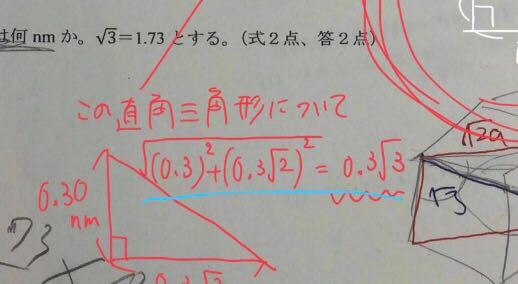 は何 nm か。√3=1.73 とする。(式2点、答2点)
この直角三角形について
√((0.3)²+(0.3√2)²) = 0.3√3
√2a
0.30
nm
√3
73